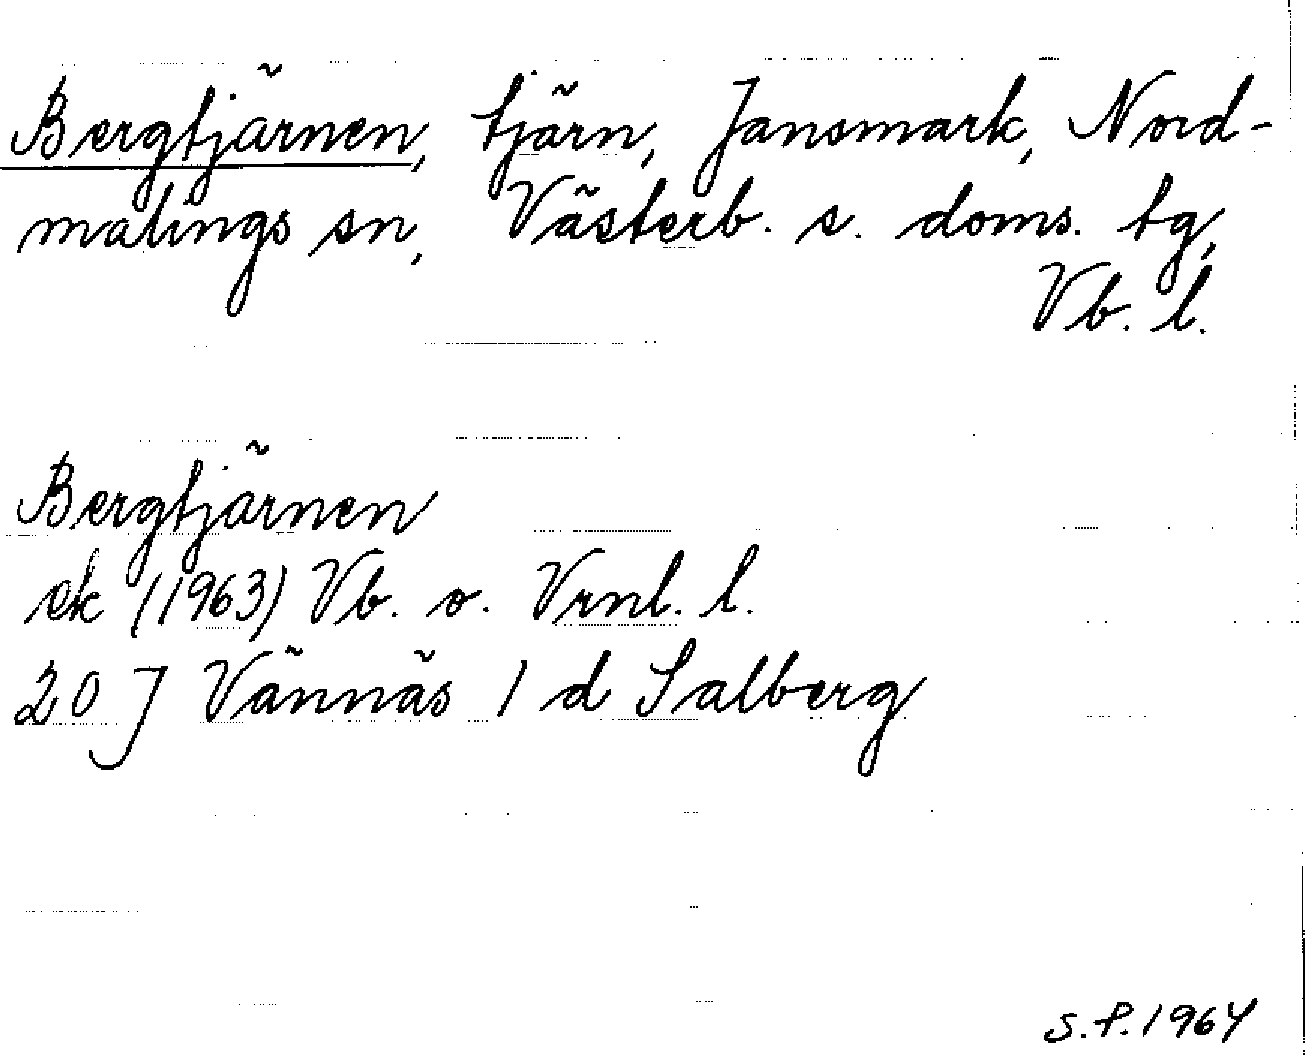 Bergtjärnen, tjärn, Jansmark, Nord-
malings sn, Västerb. s. doms. tg,
Vb. l.
Bergtjärnen
ek (1963) Vb. o. Vrnl. l.
20 J Vännäs 1 d Salberg
S.P. 1964